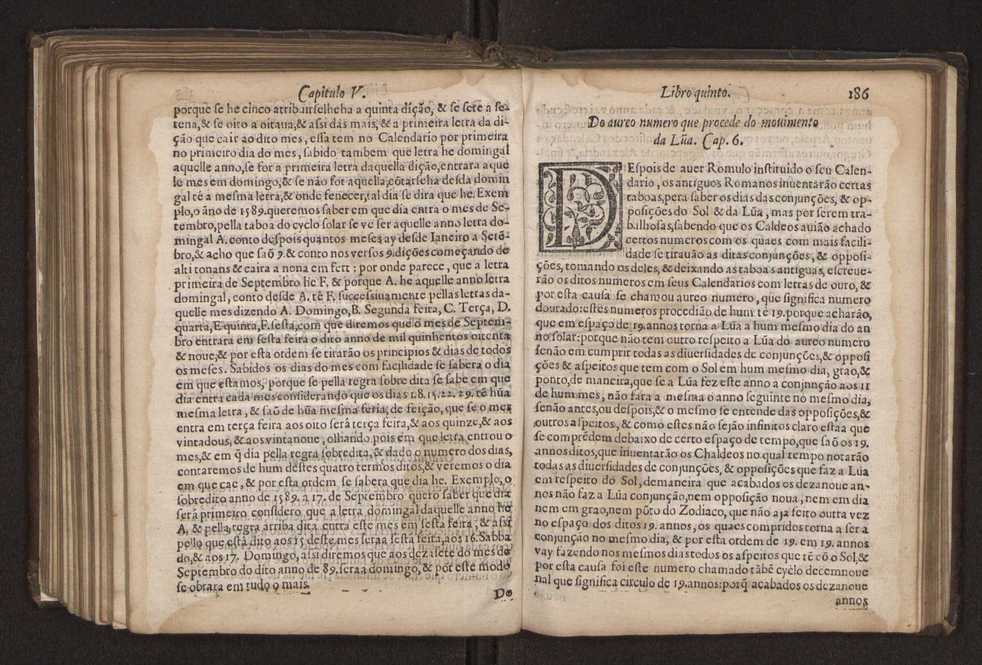 Capitulo V.
porque se he cinco atribuirselheha a quinta dição, & se sete a se-
tena, & se oito a oitaua, & assi das mais, & a primeira letra da di-
ção que cair ao dito mes, essa tem no Calendario por primeira
no primeiro dia do mes, sabido tambem que letra he domingal
aquelle anno, se for a primeira letra daquella dição, entrara aque
le mes em domingo, & se não for aquella, cõtarseha desda domin
gal tè a mesma letra, & onde fenecer, tal dia se dira que he. Exem
plo, o ano de 1589. queremos saber em que dia entra o mes de Se-
tembro, pella taboa do cyclo solar se ve ser aquelle anno letra do-
mingal A. conto despois quantos meses ay desde Ianeiro a Setẽ-
bro, & acho que saõ 9. & conto nos versos 9. dições começando de
alti tonans & caira a nona em fert : por onde parece, que a letra
primeira de Septembro he F. & porque A. he aquelle anno letra
domingal, conto desde A. tè F. successiuamente pellas letras da-
quelle mes dizendo A. Domingo, B. Segunda feira, C. Terça, D.
quarta, E. quinta, F. sesta, com que diremos que o mes de Septem-
bro entrara em sesta feira o dito anno de mil quinhentos oitenta
& noue, & por esta ordem se tirarão os principios & dias de todos
os meses. Sabidos os dias do mes com facilidade se sabera o dia
em que estamos, porque se pella regra sobre dita se sabe em que
dia entra cada mes considerando que os dias 1. 8. 15. 22. 29. tẽ hũa
mesma letra, & saõ de hũa mesma feria, de feição, que se o mes
entra em terça feira aos oito será terça feira, & aos quinze, & aos
vintadous, & aos vintanoue, olhando pois em que feira entrou o
mes, & em q̃ dia pella regra sobredita, & dado o numero dos dias,
contaremos de hum destes quatro termos ditos, & veremos o dia
em que cae, & por esta ordem se sabera que dia he. Exemplo, o
sobredito anno de 1589. a 17. de Septembro quero saber que dia
será primeiro considero que a letra domingal daquelle anno he
A, & pella regra arriba dita entra este mes em sesta feira, & assi
pello que està dito aos 15 deste mes serna sesta feira, aos 16. Sabba
do, & aos 17. Domingo, assi diremos que aos dezasete do mes de
Septembro do dito anno de 89. sera a domingo, & por este modo
se obrara em tudo o mais.
Do
Libro quinto. 186
Do aureo numero que procede do mouimento
da Lũa. Cap. 6.
DEspois de auer Romulo instituido o seu Calen-
dario, os antiguos Romanos inuentarão certas
taboas, pera saber os dias das conjunções, & op-
posições do Sol & da Lũa, mas por serem tra-
balhosas, sabendo que os Caldeos auião achado
certos numeros com os quaes com mais facili-
dade se tirauão as ditas conjunções, & opposi-
ções, tomando os deles, & deixando as taboas antiguas, escreue-
rão os ditos numeros em seus Calendarios com letras de ouro, &
por esta causa se chamou aureo numero, que significa numero
dourado: estes numeros procedião de hum tè 19. porque acharão,
que em espaço de 19. annos torna a Lũa a hum mesmo dia do an
no solar: porque não tem outro respeito a Lũa do aureo numero
senão em cumprir todas as diuersidades de conjunções, & opposi
ções & aspeitos que tem com o Sol em hum mesmo dia, grao, &
ponto, de maneira, que se a Lũa fez este anno a conjunção aos 11
de hum mes, não fara a mesma o anno seguinte no mesmo dia,
senão antes, ou despois, & o mesmo se entende das opposições, &
outros aspeitos, & como estes não sejão infinitos claro està a que
se comprẽdem debaixo de certo espaço de tempo, que saõ os 19.
annos ditos, que inuentarão os Chaldeos no qual tempo notarão
todas as diuersidades de conjunções, & opposições que faz a Lũa
em respeito do Sol, demaneira que acabados os dezanoue an-
nos não faz a Lũa conjunção, nem opposição noua, nem em dia
nem em grao, nem põto do Zodiaco, que não aja feito outra vez
no espaço dos ditos 19. annos, os quaes compridos torna a ser a
conjunção no mesmo dia, & por esta ordem de 19. em 19. annos
vay fazendo nos mesmos dias todos os aspeitos que tẽ cõ o Sol, &
por esta causa foi este numero chamado tãbẽ cyclo decemnoue
nal que significa circulo de 19. annos: porq̃ acabados os dezanoue
annos